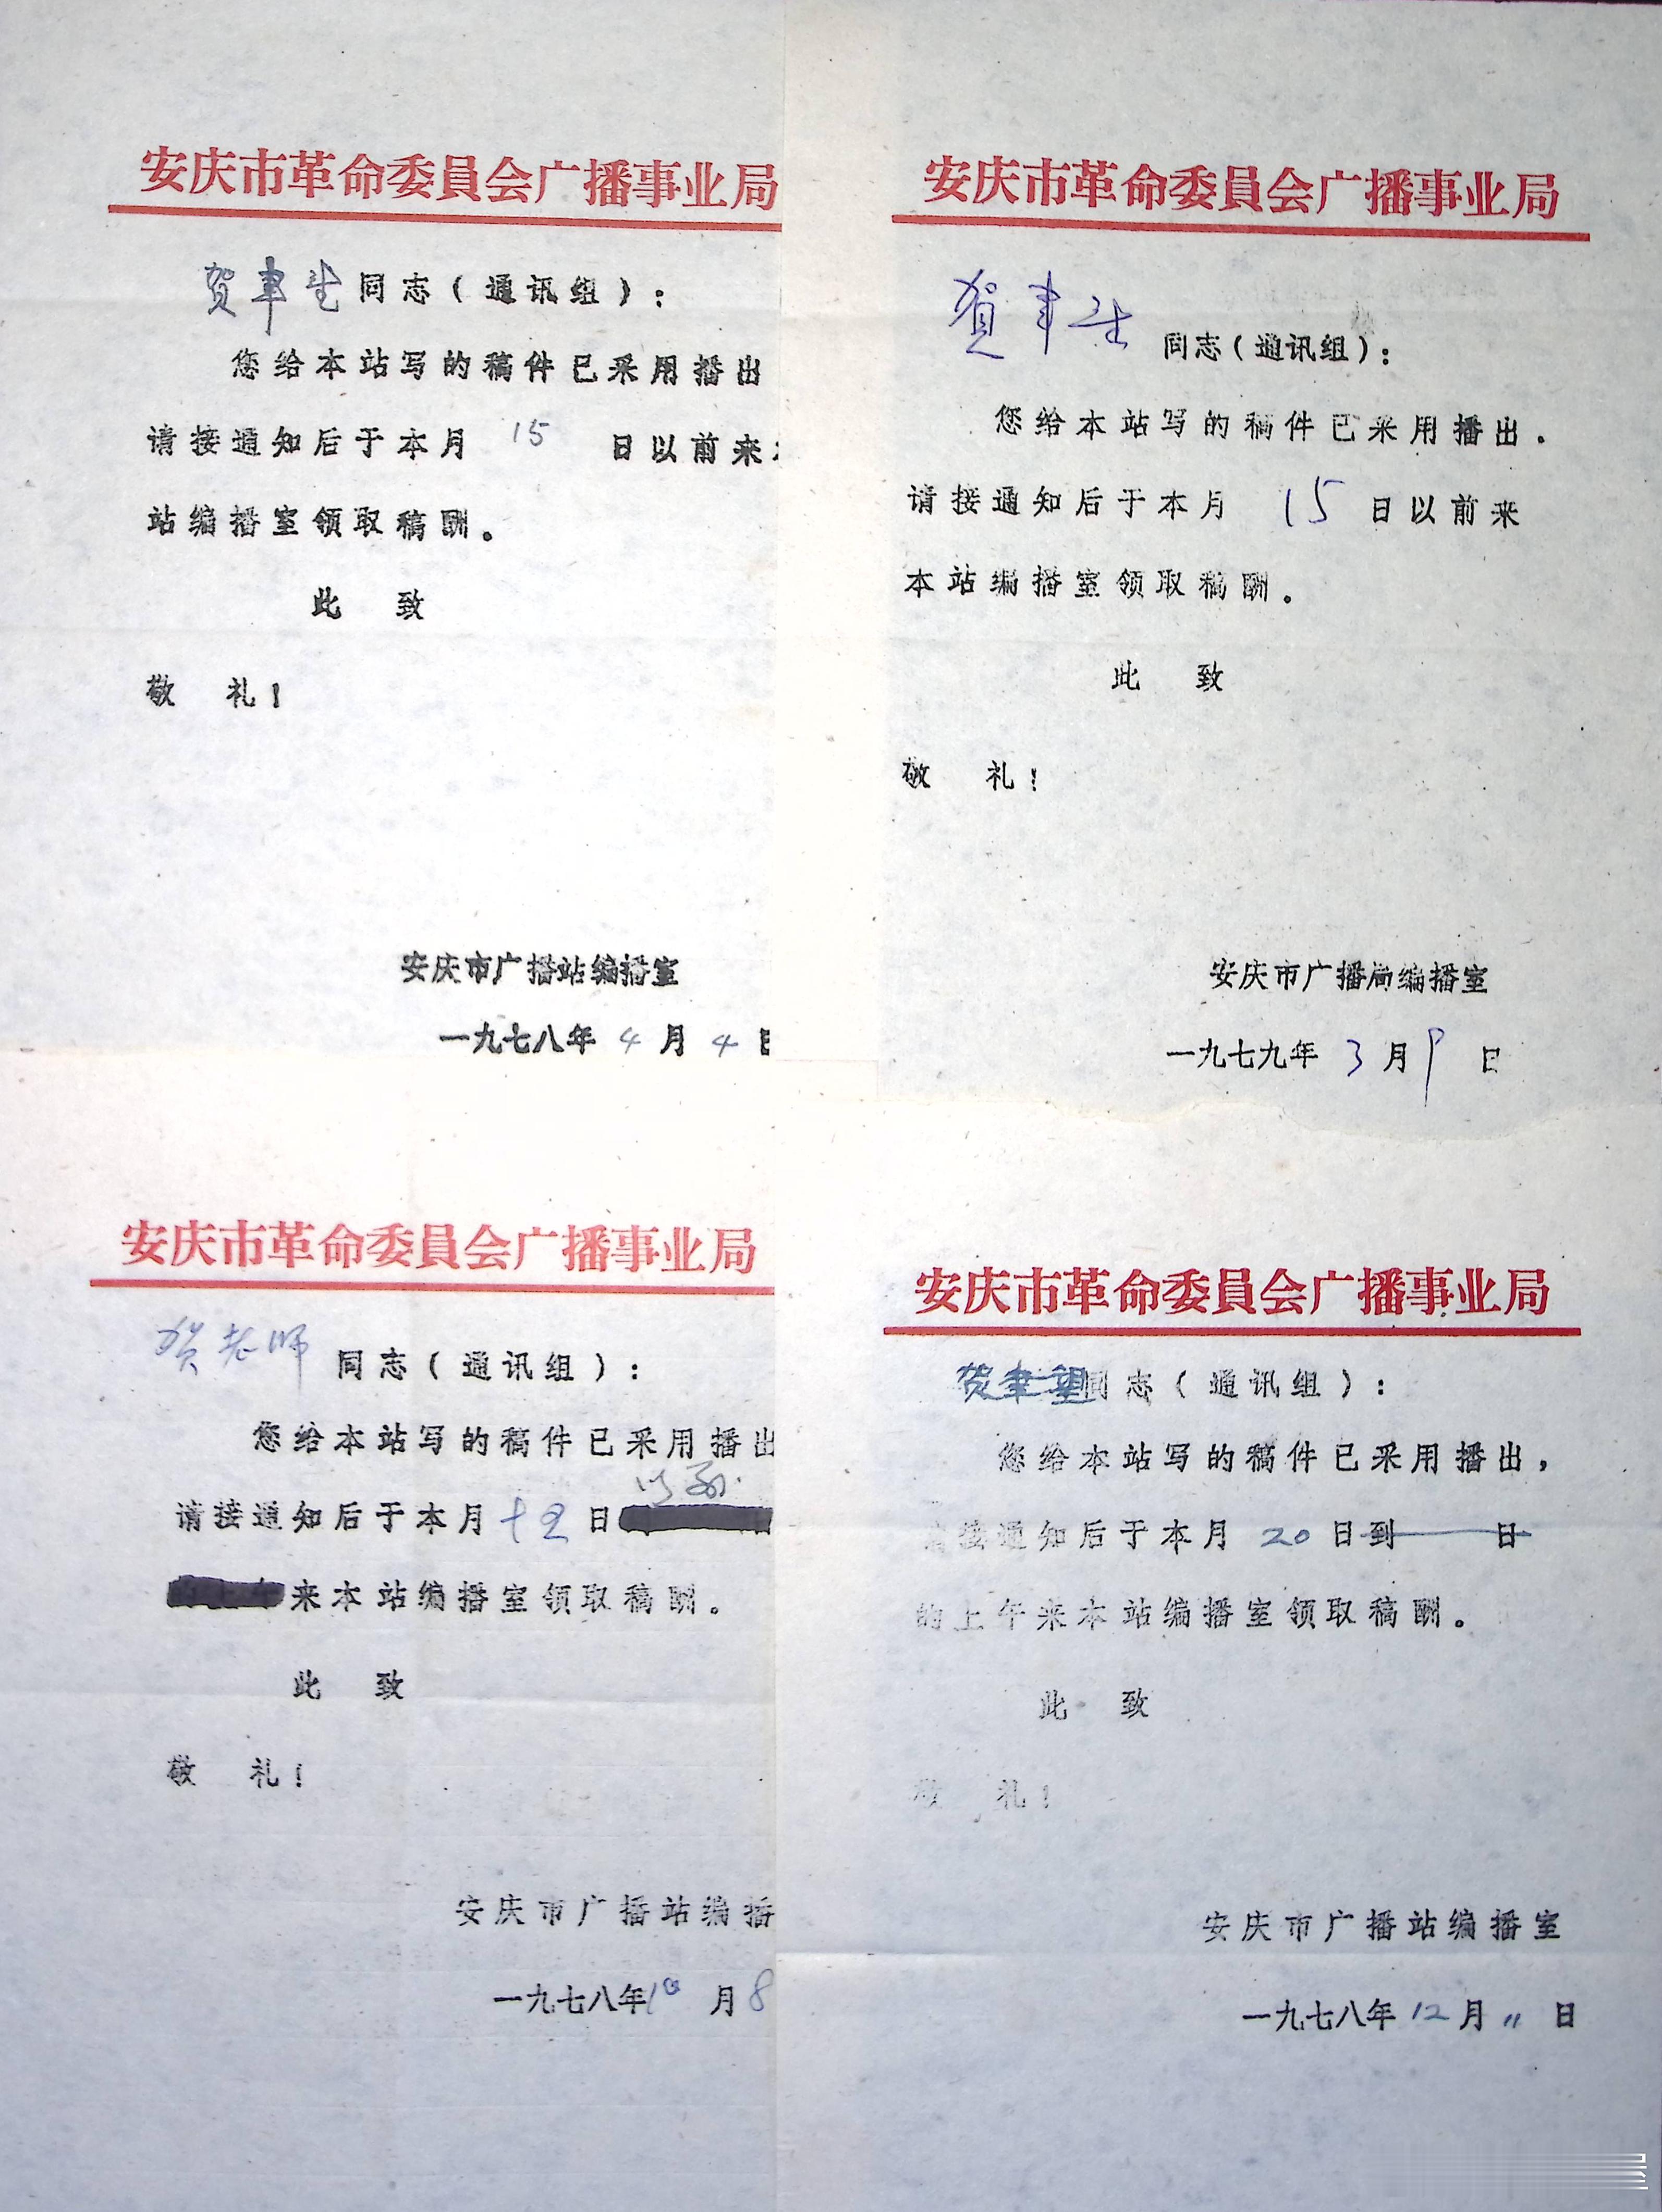 安庆市革命委員会广播事业局
贺聿生同志（通讯组）：
您给本站写的稿件已采用播出
请接通知后于本月 15 日以前来
站编播室领取稿酬。
此 致
敬 礼！
安庆市广播站编播室
一九七八年 4 月 4 日
安庆市革命委員会广播事业局
賀聿生 同志（通讯组）：
您给本站写的稿件已采用播出．
请接通知后于本月 15 日以前来
本站编播室领取稿酬。
此 致
敬 礼！
安庆市广播局编播室
一九七九年 3 月 9 日
安庆市革命委員会广播事业局
贺老师 同志（通讯组）：
您给本站写的稿件已采用播出
以前
请接通知后于本月 日
来本站编播室领取稿酬。
此 致
敬 礼！
安庆市广播站编播
一九七八年 10 月 8
安庆市革命委員会广播事业局
贺聿 同志（通讯组）：
您给本站写的稿件已采用播出，
请接通知后于本月 20 日到 日
的上午来本站编播室领取稿酬。
此 致
敬 礼！
安庆市广播站编播室
一九七八年 12 月 11 日